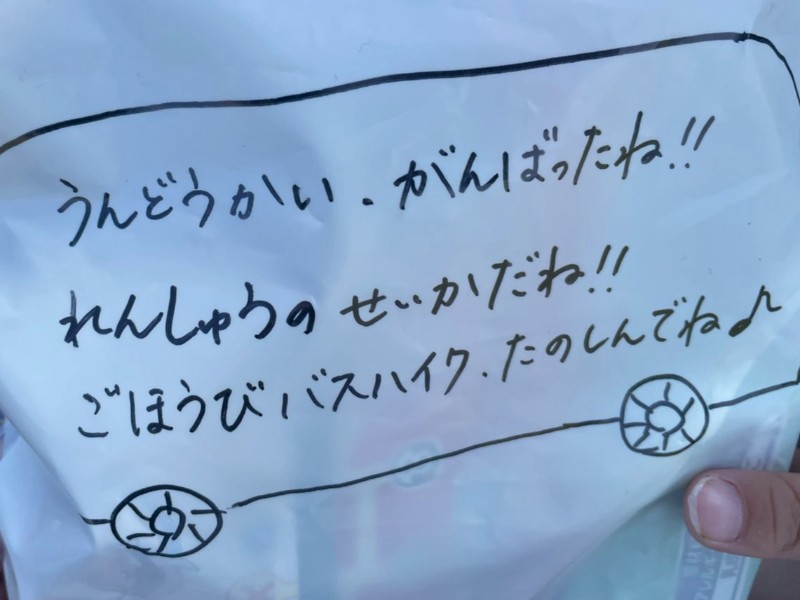 うんどうかい、がんばったね!!
れんしゅうの せいかだね!!
ごほうびバスハイク、たのしんでね♪